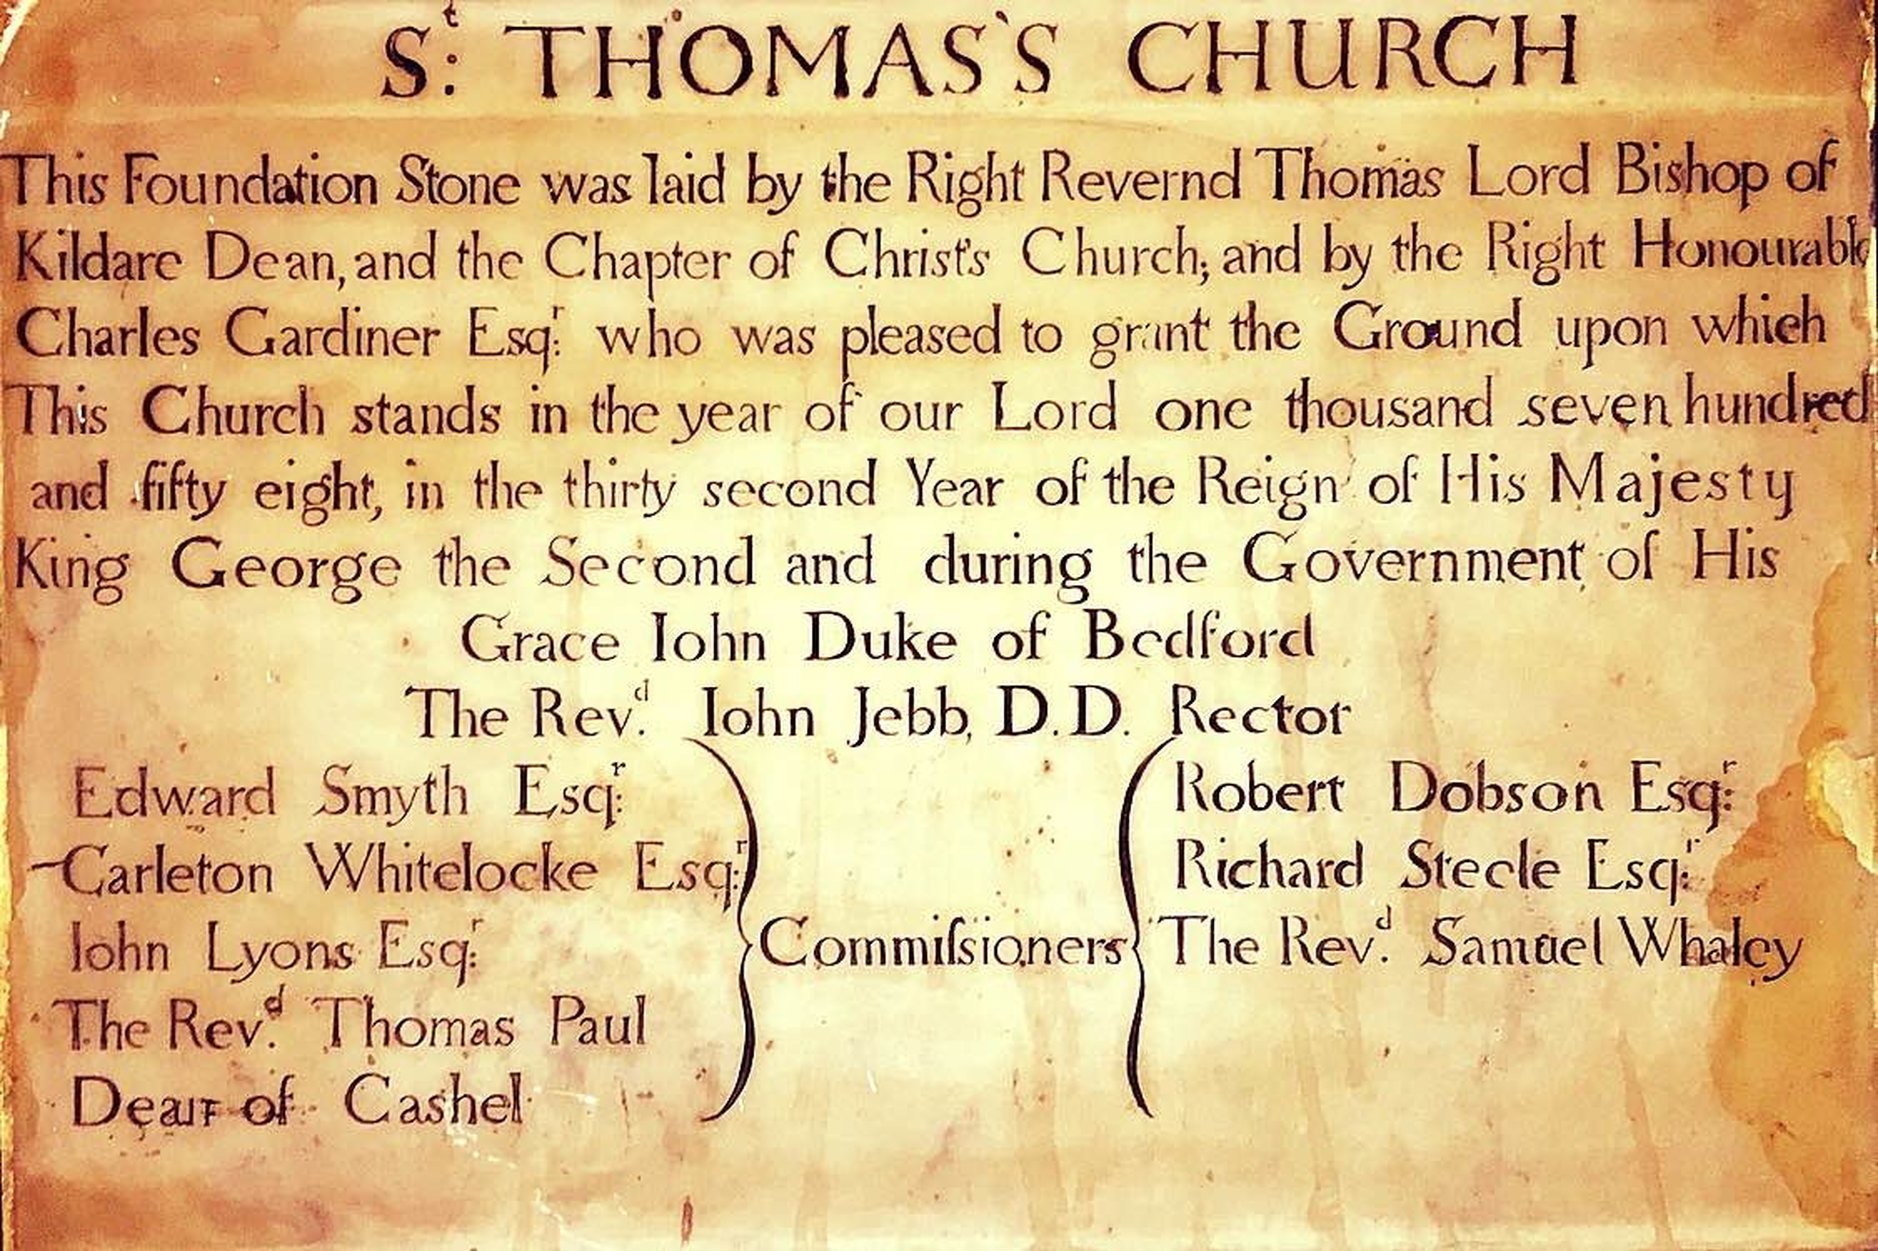 S:ᵗ THOMAS'S CHURCH
This Foundation Stone was laid by the Right Revernd Thomas Lord Bishop of
Kildare Dean, and the Chapter of Christ's Church; and by the Right Honourable
Charles Gardiner Esq:ʳ who was pleased to grant the Ground upon which
This Church stands in the year of our Lord one thousand seven hundred
and fifty eight, in the thirty second Year of the Reign of His Majesty
King George the Second and during the Government of His
Grace Iohn Duke of Bedford
The Rev.ᵈ Iohn Jebb, D.D. Rector
Edward Smyth Esq:ʳ
Carleton Whitelocke Esq:ʳ
Iohn Lyons Esq:ʳ
The Rev.ᵈ Thomas Paul
Dean of Cashel
Commiſsioners
Robert Dobson Esq:ʳ
Richard Steele Esq:ʳ
The Rev.ᵈ Samuel Whaley